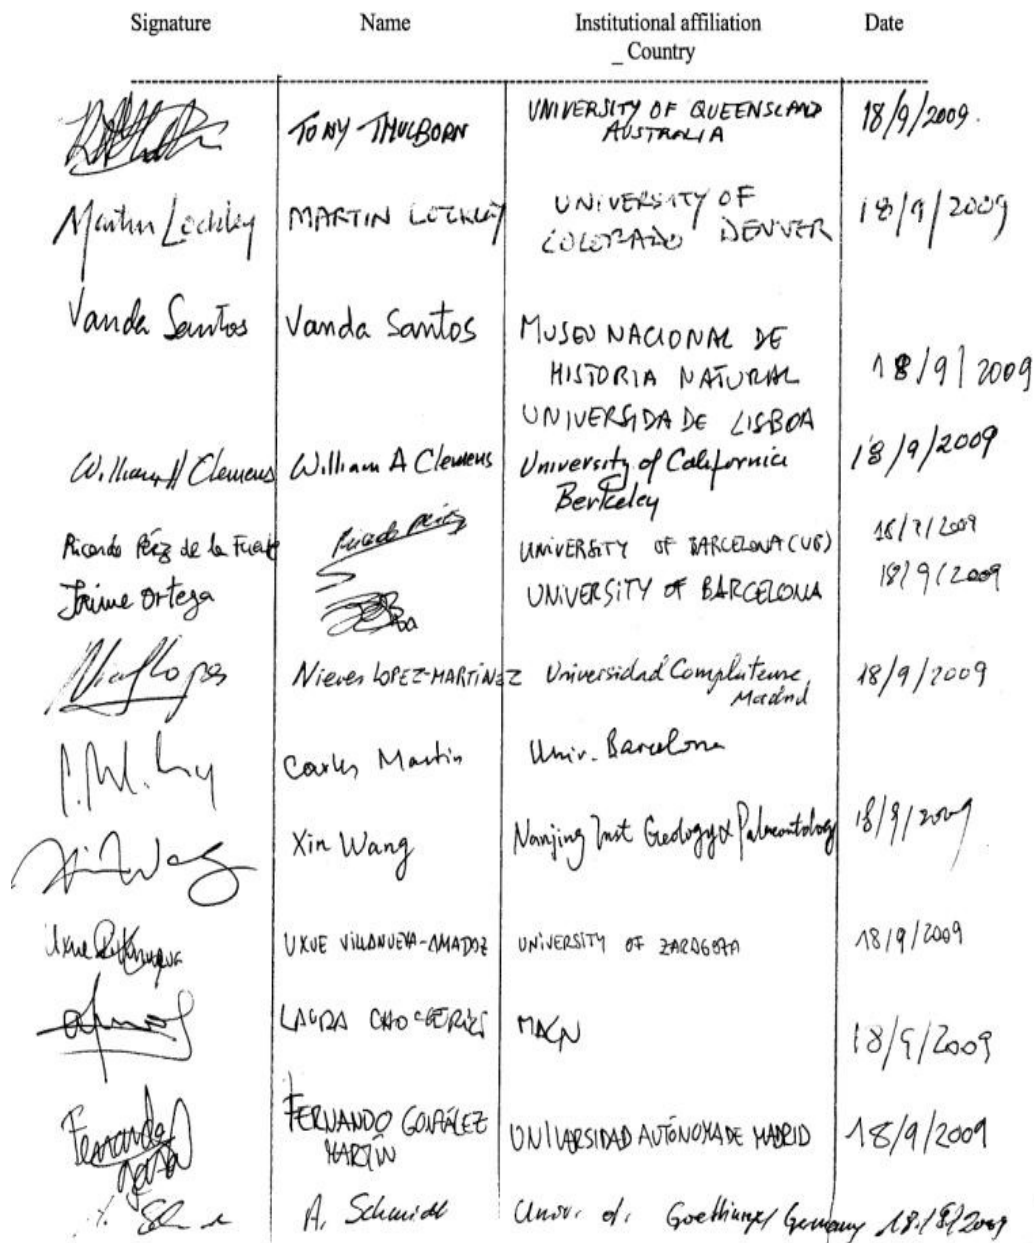 Signature Name Institutional affiliation Date
_ Country
TONY THULBORN UNIVERSITY OF QUEENSLAND 18/9/2009.
AUSTRALIA
Martin Lockley MARTIN LOCKLEY UNIVERSITY OF 18/9/2009
COLORADO DENVER
Vanda Santos Vanda Santos MUSEU NACIONAL DE
HISTORIA NATURAL 18/9/2009
UNIVERSIDADE LISBOA
William A Clemens William A Clemens University of California 18/9/2009
Berkeley
Ricardo Pérez de la Fuente Ricardo Pérez UNIVERSITY OF BARCELONA (UB) 18/9/2009
Jaime Ortega UNIVERSITY OF BARCELONA 18/9/2009
Nieves LOPEZ-MARTINEZ Universidad Complutense 18/9/2009
Madrid
Carles Martin Univ. Barcelona
Xin Wang Xin Wang Nanjing Inst Geology & Palaeontology 18/9/2009
Uxue UXUE VILLANUEVA-AMADOZ UNIVERSITY OF ZARAGOZA 18/9/2009
LAURA MACN 18/9/2009
Fernando FERNANDO GONZÁLEZ UNIVERSIDAD AUTÓNOMA DE MADRID 18/9/2009
MARTÍN
A. Schmidt Univ. of Goettingen Germany 18/9/2009